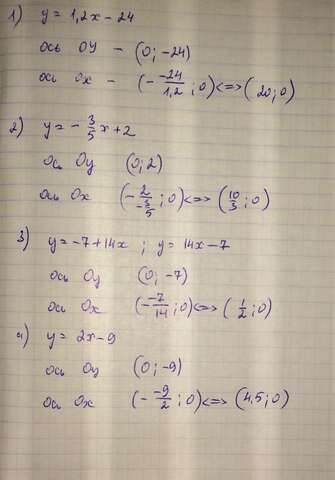 1) y = 1,2x - 24
ось Oy - (0; -24)
ось Ox - (- -24/1,2 ; 0) <=> (20; 0)
2) y = - 3/5 x + 2
ось Oy (0; 2)
ось Ox (- 2/(-3/5) ; 0) <=> (10/3 ; 0)
3) y = -7 + 14x ; y = 14x - 7
ось Oy (0; -7)
ось Ox (- -7/14 ; 0) <=> (1/2 ; 0)
4) y = 2x - 9
ось Oy (0; -9)
ось Ox (- -9/2 ; 0) <=> (4,5; 0)